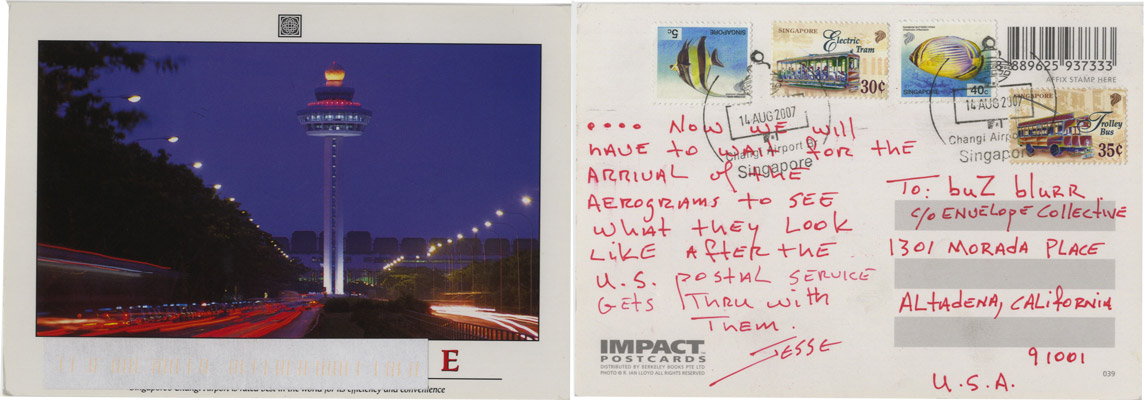 E
Singapore Changi Airport is rated best in the world for its efficiency and convenience
SINGAPORE
5c
SINGAPORE
Electric
Tram
30¢
SINGAPORE
40c
8 889625 937333
AFFIX STAMP HERE
SINGAPORE
Trolley
Bus
35¢
14 AUG 2007
Changi Airport
Singapore
14 AUG 2007
Changi Airp
Singapor
.... NOW WE will
HAVE TO WAIT FOR THE
ARRIVAL of THE
AEROGRAMS TO SEE
WHAT THEY LOOK
LIKE AFTER THE
U.S. POSTAL SERVICE
GETS THRU WITH
THEM.
JESSE
TO: buZ blurr
c/o ENVELOPE COLLECTIVE
1301 MORADA PLACE
ALTADENA, CALIFORNIA
91001
U.S.A.
IMPACT
POSTCARDS
DISTRIBUTED BY BERKELEY BOOKS PTE LTD
PHOTO © R. IAN LLOYD ALL RIGHTS RESERVED
039